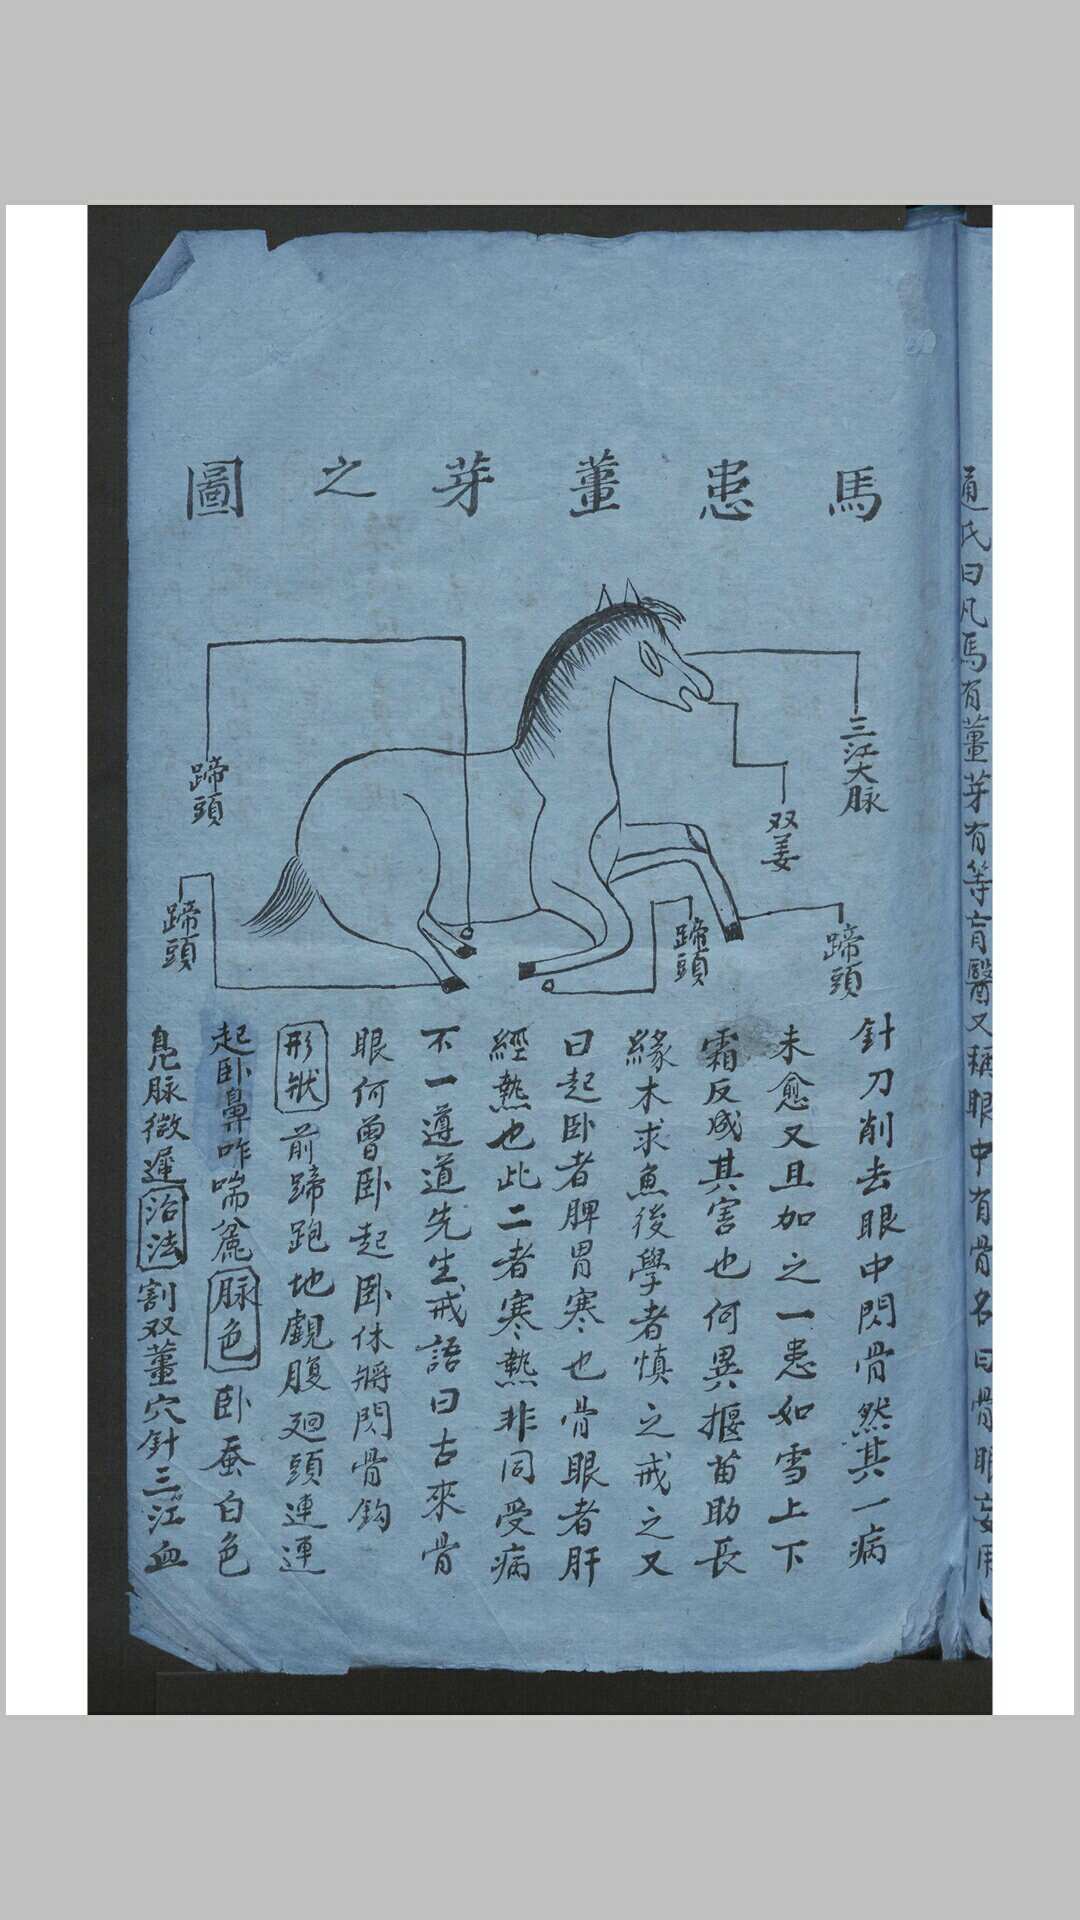 通氏曰凡馬有薑芽有等盲醫又稱眼中有骨名曰骨眼妄用
馬患薑芽之圖
三江大脉
双姜
蹄頭
蹄頭
蹄頭
蹄頭
針刀削去眼中閃骨然其一病
未愈又且加之一患如雪上下
霜反成其害也何異揠苗助長
緣木求魚後學者慎之戒之又
曰起卧者脾胃寒也骨眼者肝
經熱也此二者寒熱非同受病
不一遵道先生戒語曰古來骨
眼何曾卧起卧休將閃骨鈎
形狀前蹄跑地覷腹廻頭連連
起卧鼻咋喘麄脉色卧蚕白色
鳧脉微遲治法割双薑穴針三江血